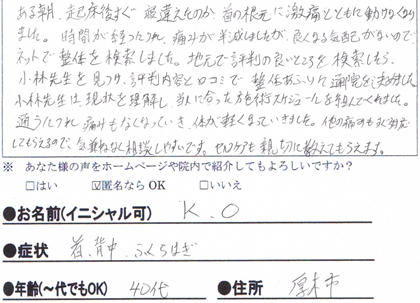 ある朝、起床後すぐ 寝違えたのか 首の根元に激痛とともに動けなくなり
ました。時間が経つにつれ、痛みが半減しましたが、良くなる気配がないので
ネットで整体を検索しました。地元で評判の良いところを検索したら
小林先生を見つけ、評判内容と口コミで 整体あふりに通院を決めました。
小林先生は現状を理解し、私に合った施術スケジュールを組んでくれました。
通うにつれ痛みもなくなっていき、体が軽くなっていきました。他の痛みも対応
してもらえるので、気兼ねなく相談しやすいです。セルフケアも親切に教えてもらえます。
※ あなた様の声をホームページや院内で紹介してもよろしいですか？
□はい ☑匿名なら OK □いいえ
●お名前(イニシャル可) K.O
●症状 首、背中、ふくらはぎ
●年齢(～代でもOK) 40代 ●住所 厚木市